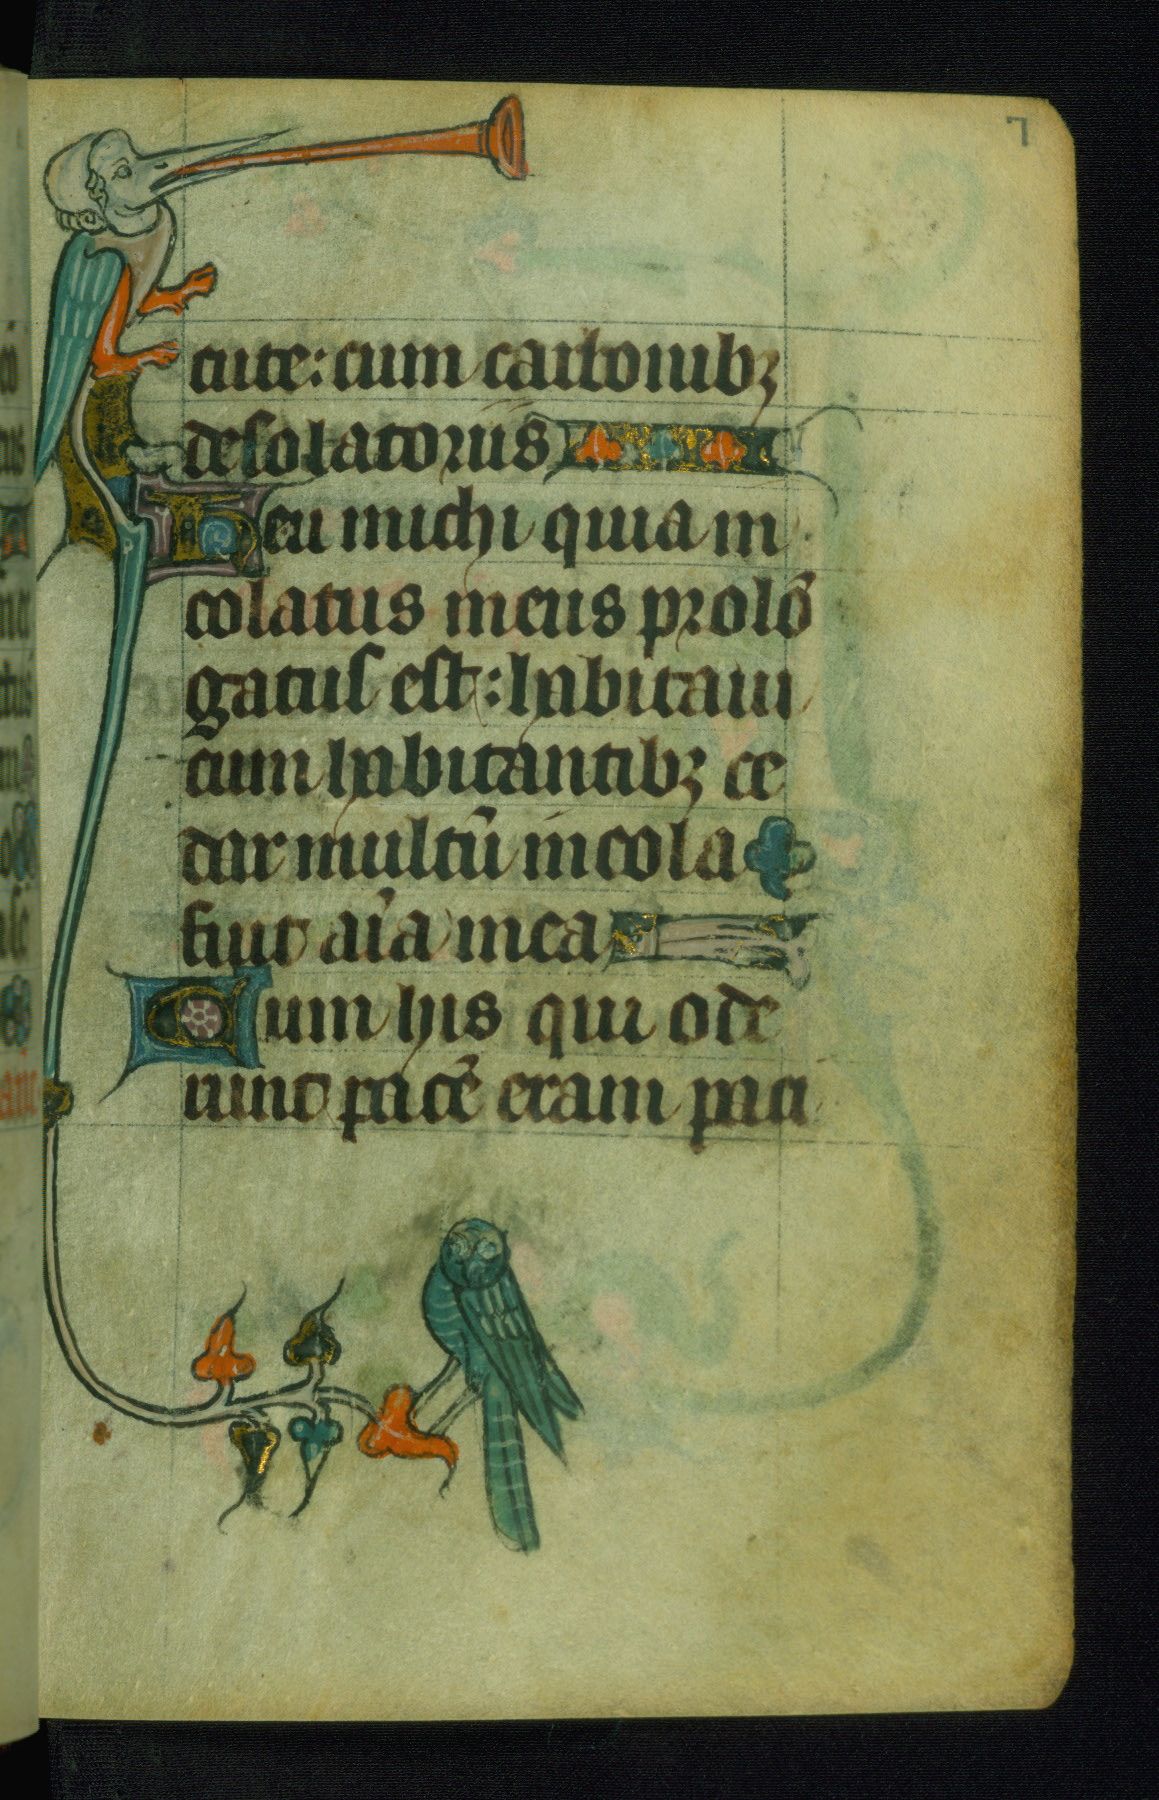 7
cute: cum carbonibꝫ
desolatoriis
Heu michi quia in
colatus meus prolō
gatus est: habitaui
cum habitantibꝫ ce
dar multū incola
fuit aīa mea
Cum his qui ode
runt pacē eram paci